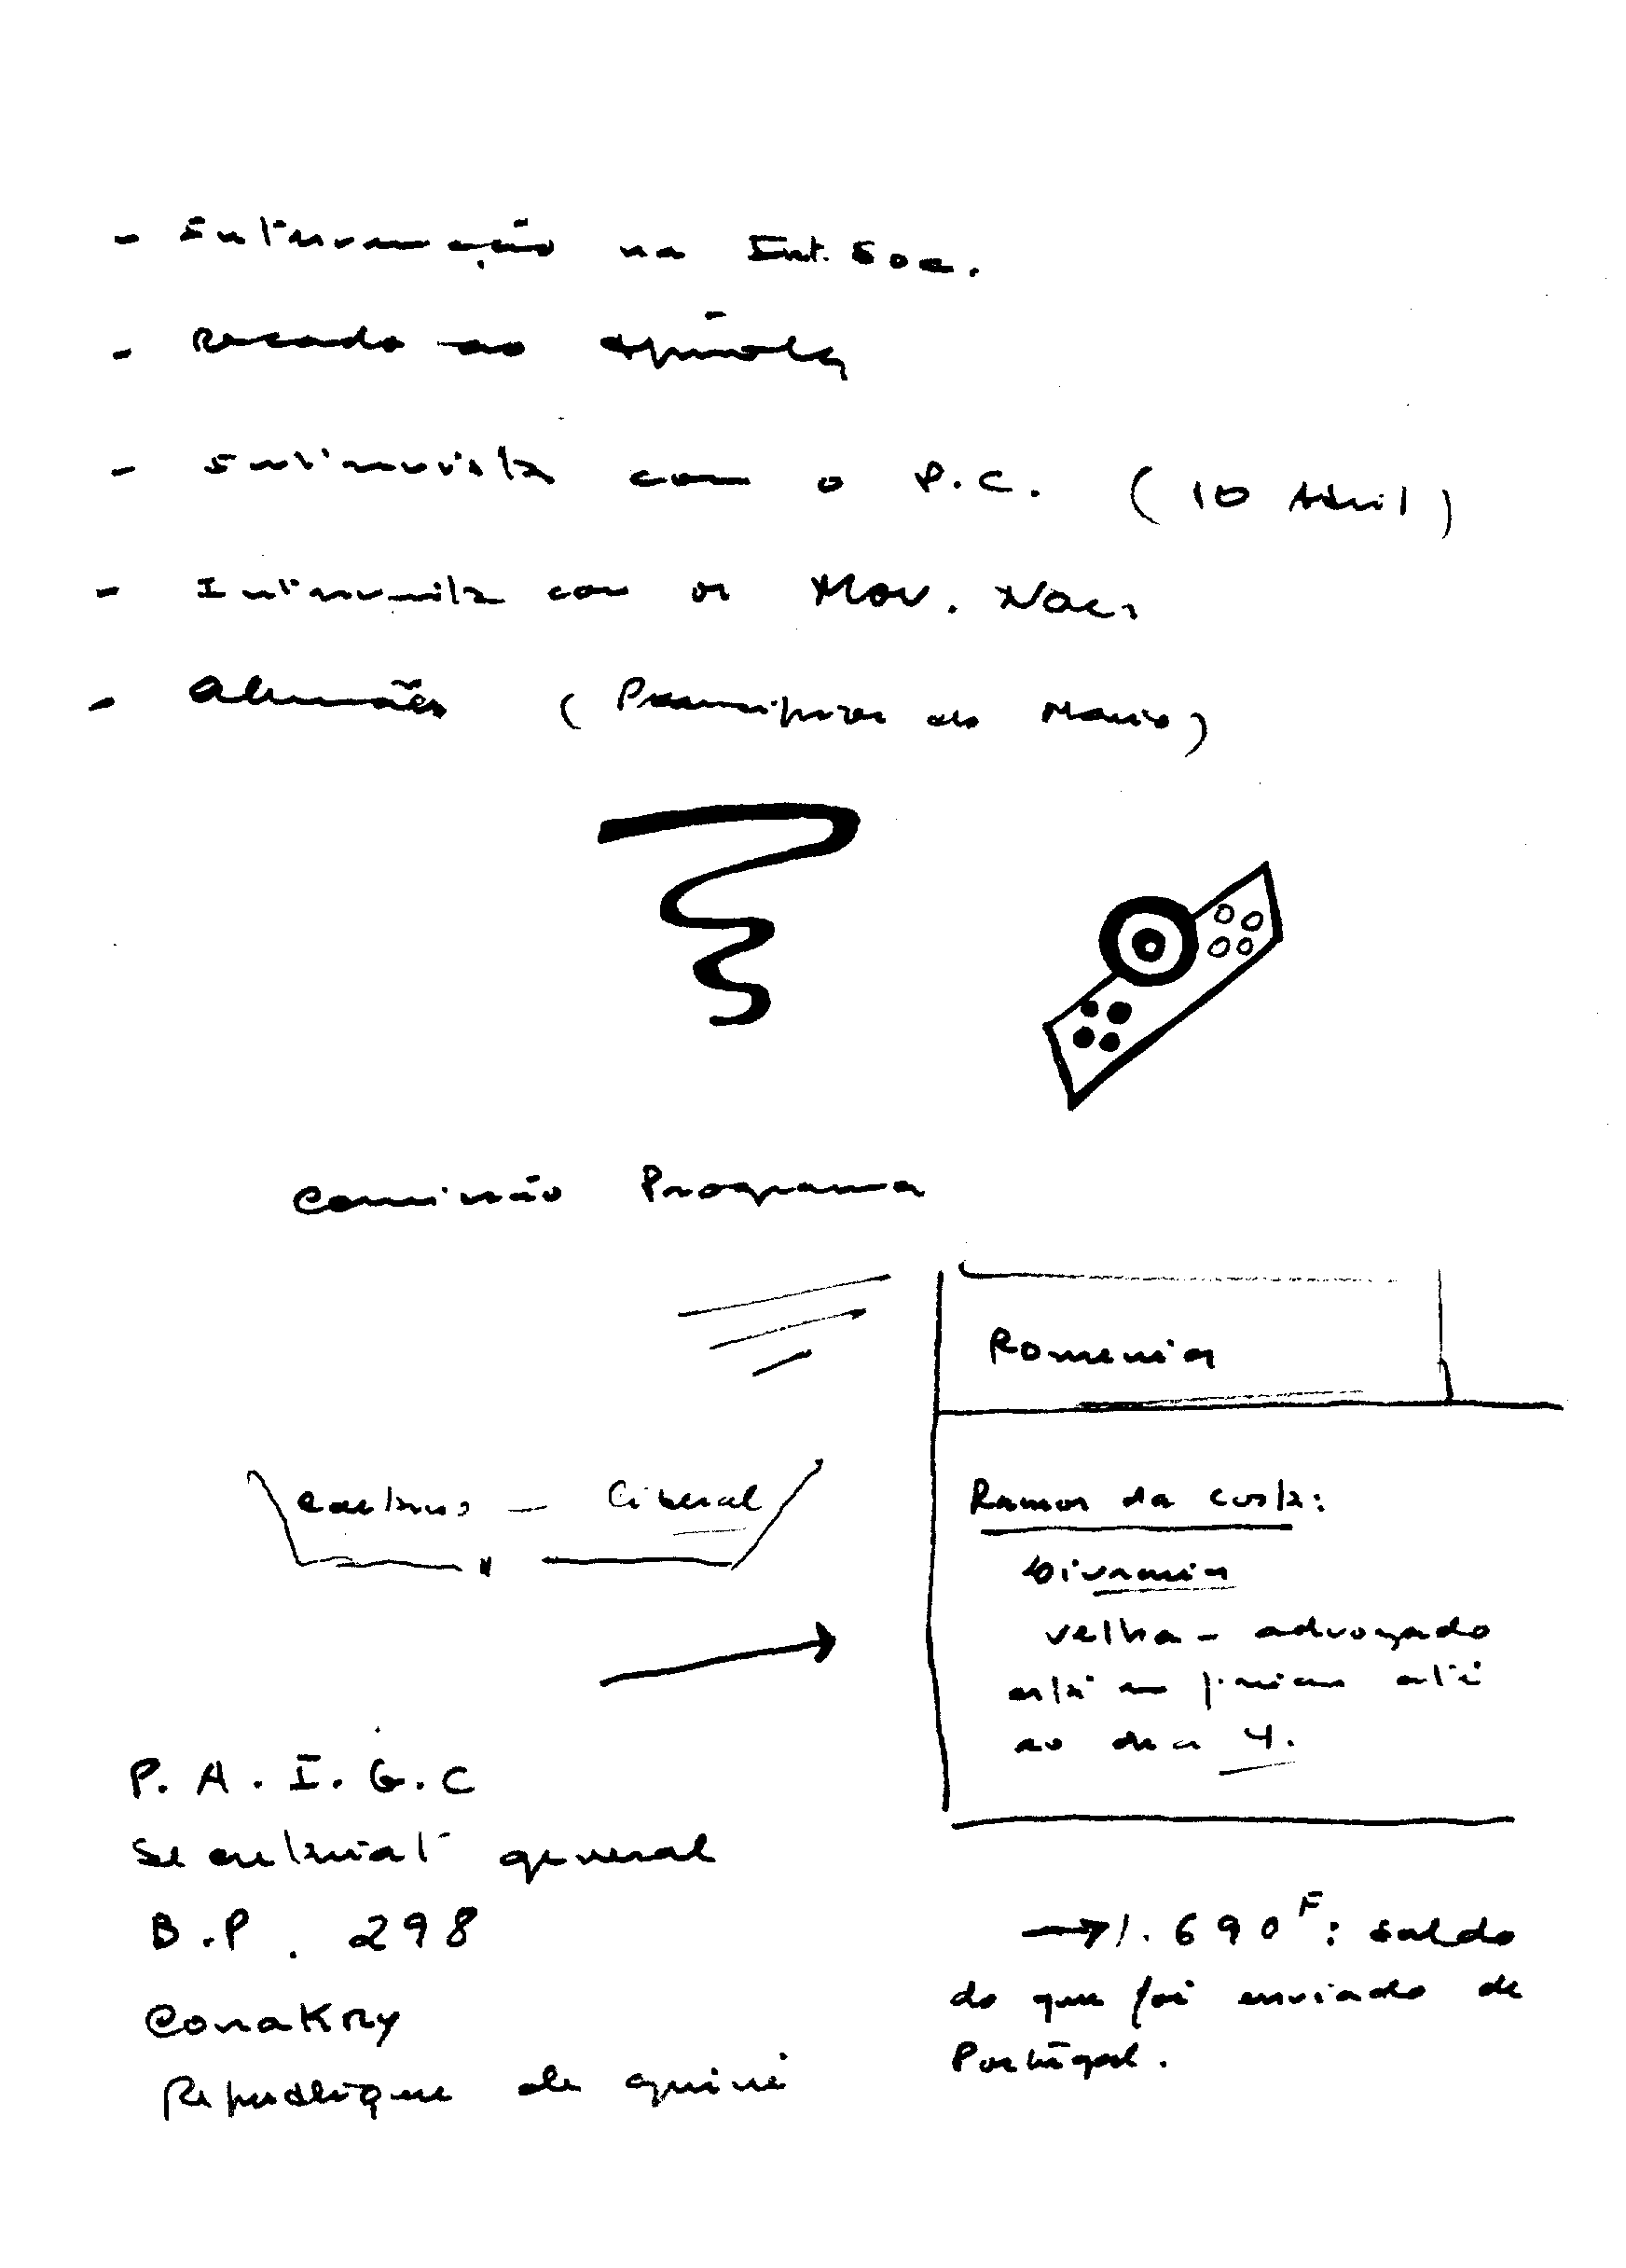 - Intervenção na Int. Soc.
- Recado ao Spínola
- Entrevista com o P.C. (10 Abril)
- Entrevista com os Mov. Nac.
- Alemães ( do Mário)
Comissão Programa
Romenia
Caetano - Liberal
Ramos da Costa:
Livraria
velha - advogado
está em até
ao dia 4.
P.A.I.G.C
Secretariat general
B.P. 298
Conakry
Republique de guiné
→ 1.690F: saldo
do que foi enviado de
Portugal.